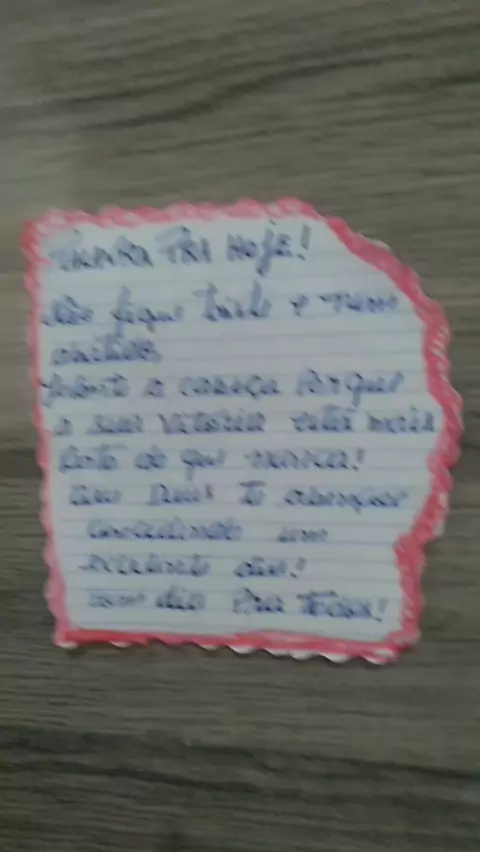 PRA HOJE!
Não fique triste e nem
Levante a cabeça Porque
a sua vitória está mais
Perto do que nunca!
que Deus te abençoe
um
excelente dia!
Bom dia Pra Todos!